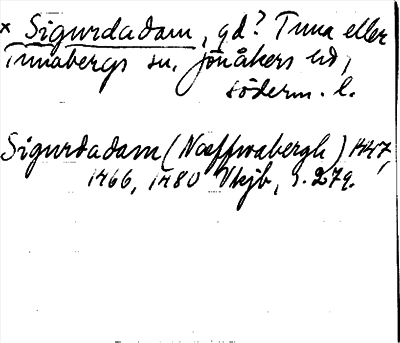 × Sigurdadam, gd? Tuna eller
Tunabergs sn. Jönåkers hd,
söderm. l.
Sigurdadam (Næffwabergh) 1447,
1466, 1480 Vkjb, s. 279.